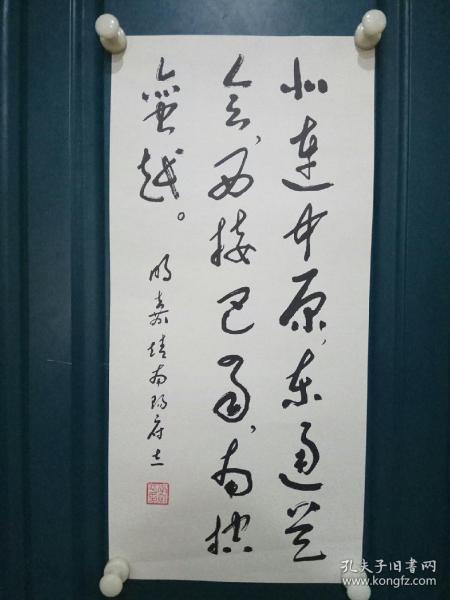 北连中原，东通吴
会，西接巴蜀，南控
蛮越。
明嘉靖南阳府志
孔夫子旧书网
www.kongfz.com